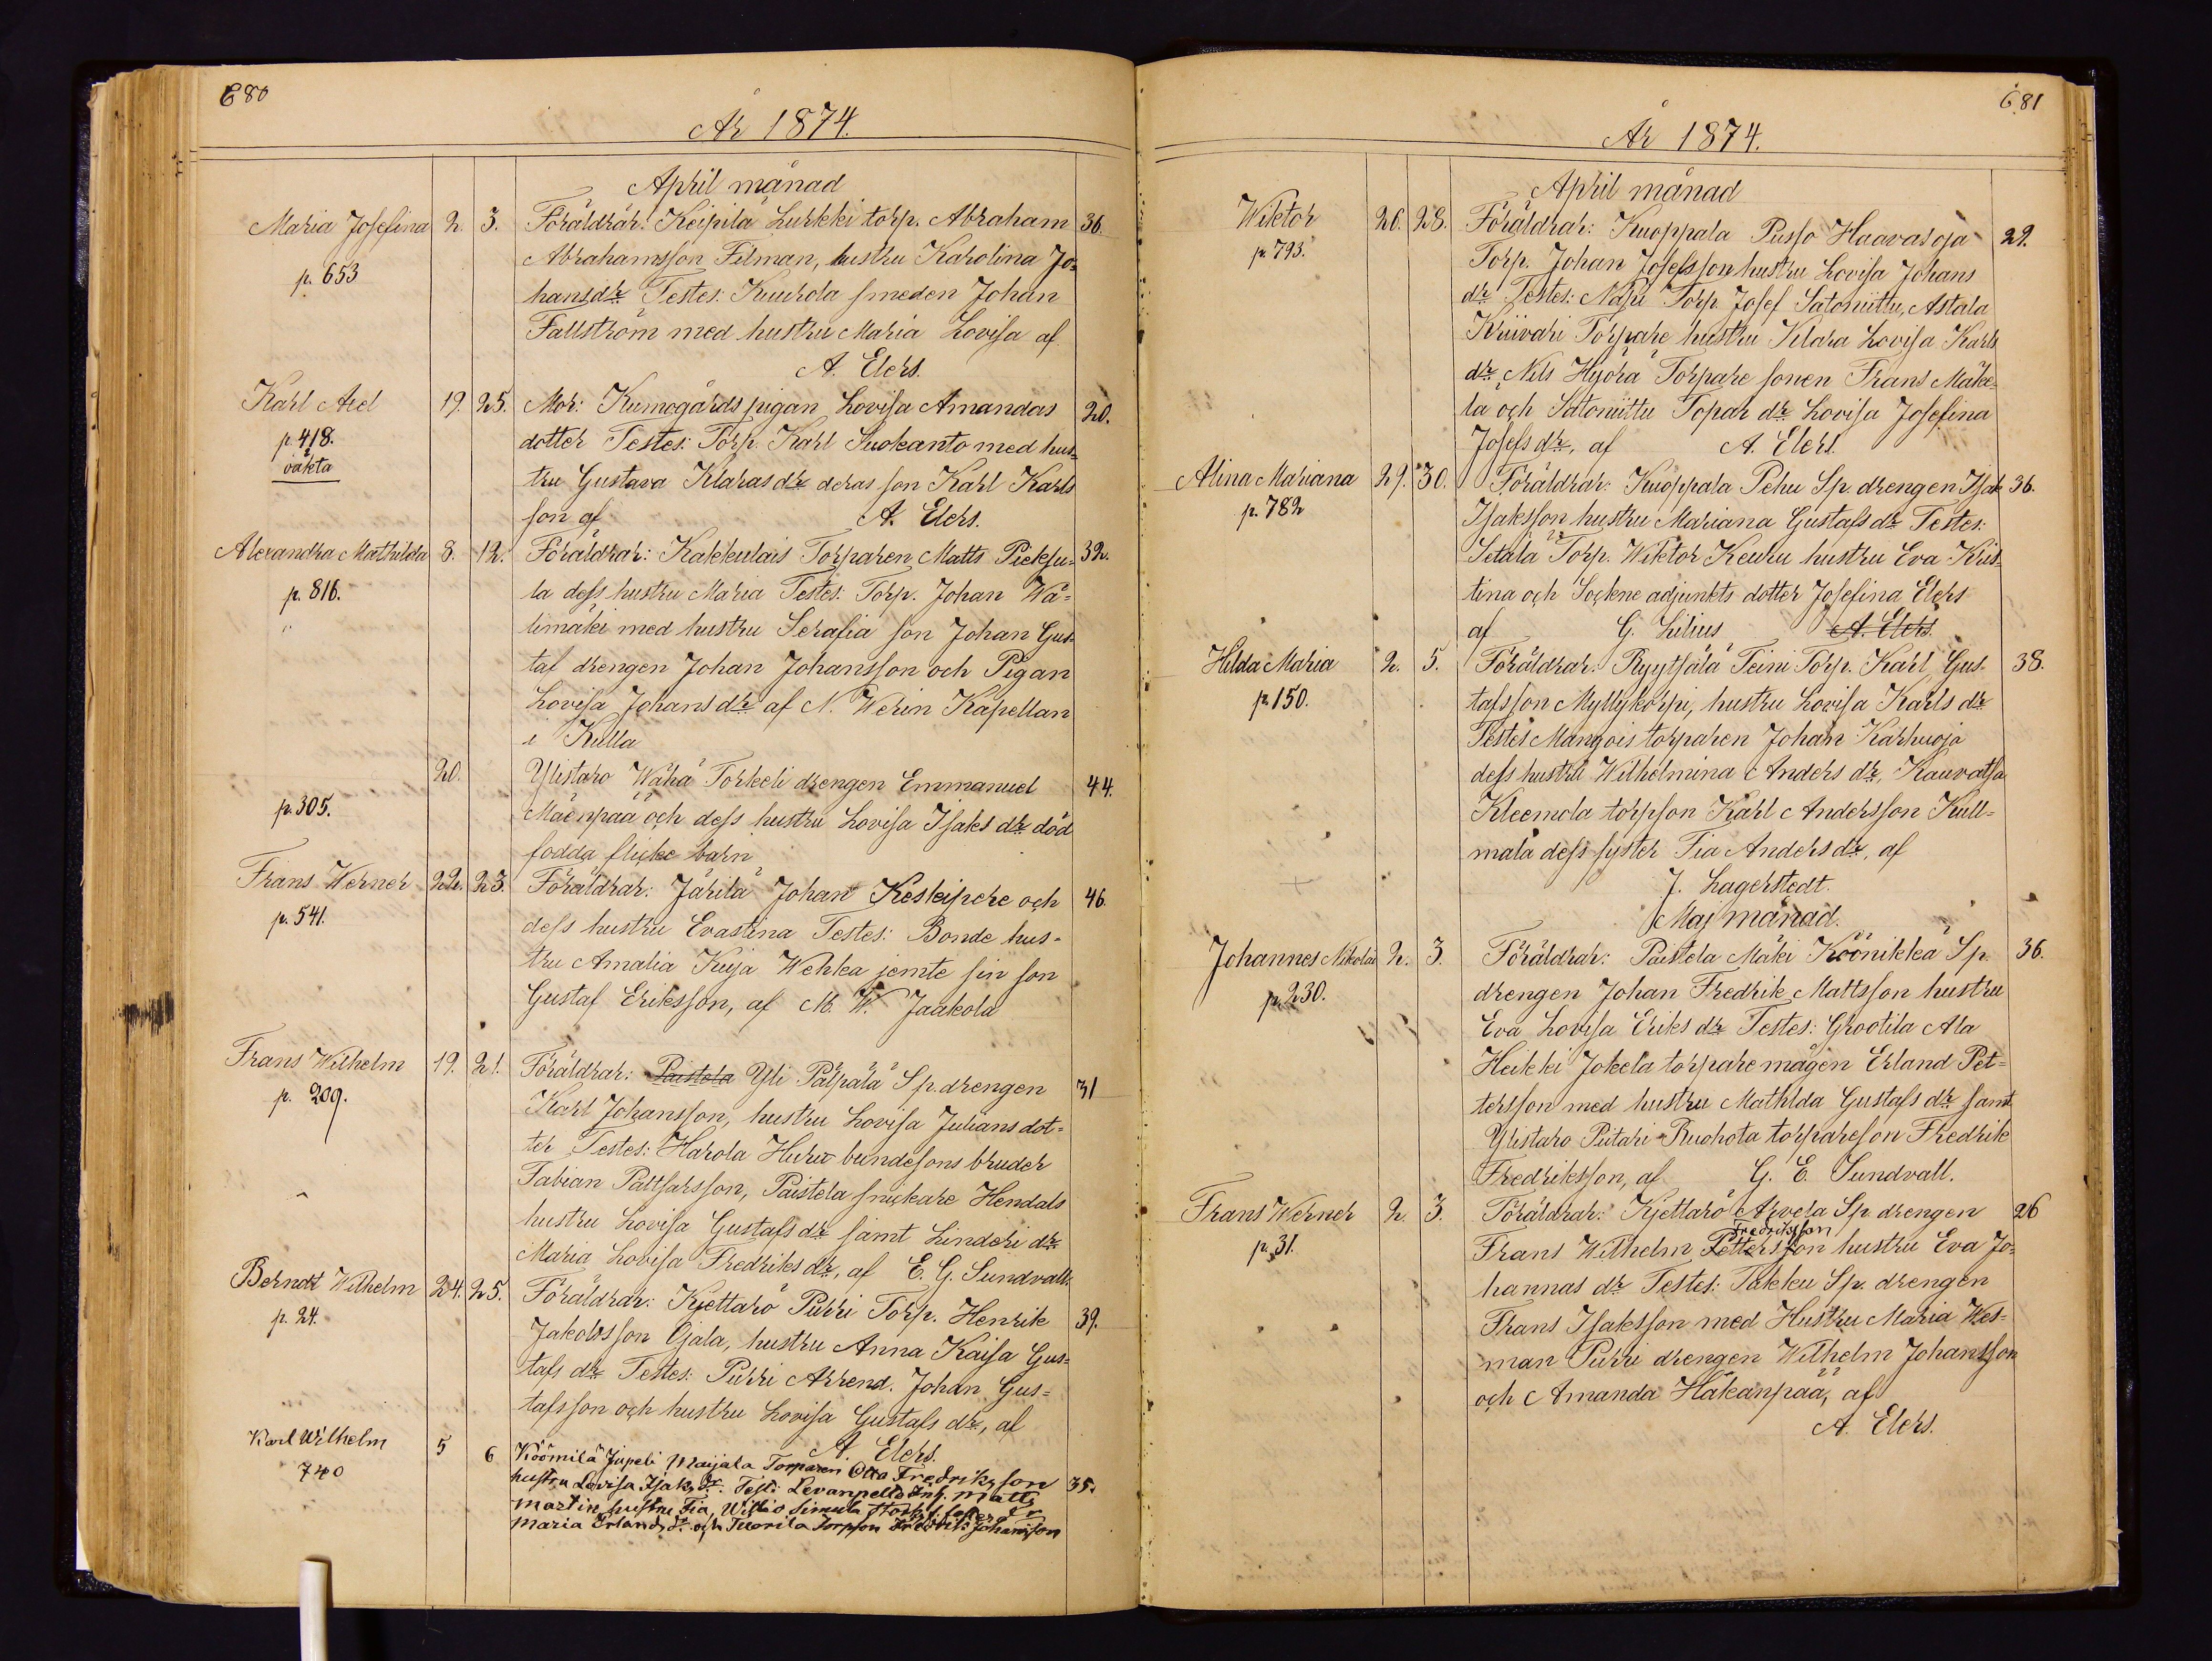 680
År 1874.
April månad
Maria Josefina 2. 3. Föräldrar: Keipilä Lurkki torp. Abraham 36.
Abrahamsson Filman, hustru Karolina Jo=
p. 653
hansdr Testes: Kuurola smeden Johan
Fallström med hustru Maria Lovisa af
A. Elers.
Karl Axel 19. 25. Mor: Kumogårds pigan Lovisa Amandas 20.
p. 418.
oäkta
dotter Testes: Torp. Karl Suokanto med hus=
tru Gustava Klarasdr deras son Karl Karls
son af A. Elers.
Alexandra Mathilda 8. 12. Föräldrar: Kakkulais Torparen Matts Pieksu= 32.
p. 816.
la dess hustru Maria Testes: Torp. Johan Wä=
limäki med hustru Serafia son Johan Gus=
taf drengen Johan Johansson och Pigan
Lovisa Johansdr af N. Werin Kapellan
i Kulla
20. Ylistaro Wähä Torkeli drengen Emmanuel 44.
p. 305.
Mäenpää och dess hustru Lovisa Isaks dr död
födda flicke barn
Frans Werner 22. 23. Föräldrar: Järilä Johan Keskipere och 46.
p. 541.
dess hustru Evastina Testes: Bonde hus=
tru Amalia Kuja Wehka jemte sin son
Gustaf Eriksson, af M. W. Jaakola
Frans Wilhelm 19. 21. Föräldrar: Paistela Yli Pälpälä Sp. drengen 31
p. 209.
Karl Johansson, hustru Lovisa Julians dot=
ter Testes: Harola Huru bondesons bruder
Fabian Baltsarsson, Paistela snickare Hendals
hustru Lovisa Gustafs dr samt Linderi dr
Maria Lovisa Fredriks dr, af E. G. Sundvall.
Berndt Wilhelm 24. 25. Föräldrar: Kjettarö Purri Torp. Henrik 39.
p. 24.
Jakobsson Ojala, hustru Anna Kaisa Gus=
tafs dr Testes: Purri Arrend. Johan Gus=
tafsson och hustru Lovisa Gustafs dr, af
A. Elers.
Karl Wilhelm 5 6 Köömilä Jupeli Maijala Torparen Otto Fredriksson 35.
740
hustru Lovisa Isaks dr. Test: Levanpelto Inh. Matts
Martin hustru Fia, Wittis Simula
Maria Erlands dr och Tuorila Torpson Fredrik Johansson
681
År 1874.
April månad
Wiktor 26. 28. Föräldrar: Kuoppala Pusso Haavasoja 29.
p. 793.
Torp. Johan Josefsson hustru Lovisa Johans
dr Testes: Näsi Torp. Josef Satoniittu, Astala
Kriivari Torpare hustru Klara Lovisa Karls
dr, Nils Hyörä Torpare sonen Frans Mäke=
lä och Satoniittu Topar dr Lovisa Josefina
Josefs dr, af A. Elers.
Alina Mariana 29. 30. Föräldrar: Kuoppala Pehu Sp. drengen Isak 36.
p. 782
Isaksson hustru Mariana Gustafs dr Testes:
Setälä Torp. Wiktor Keuru hustru Eva Kris=
tina och Sockne adjunkts dotter Josefina Elers
af G. Lilius A. Elers.
Hilda Maria 2. 5. Föräldrar: Ryytsälä Teini Torp. Karl Gus= 38.
p. 150.
tafsson Myllykorpi, hustru Lovisa Karls dr
Testes Mangois torparen Johan Karhuoja
dess hustru Wilhelmina Anders dr, Kauvatsa
Kleemola torpson Karl Andersson Kull=
mala dess syster Fia Anders dr, af
J. Lagerstedt.
Maj månad.
Johannes Nikolai 2. 3. Föräldrar: Paistela Mäki Köönikkä Sp. 36.
p. 230.
drengen Johan Fredrik Mattsson hustru
Eva Lovisa Eriks dr Testes: Grootila Ala
Heikki Jokela torpare mågen Erland Pet=
tersson med hustru Mathlda Gustafs dr samt
Ylistaro Piitari Ruohota torpareson Fredrik
Fredriksson, af G. E. Sundvall.
Frans Werner 2. 3. Föräldrar: Kjettarö Arvela Sp. drengen 26
p. 31.
Fredriksson
Frans Wilhelm Pettersson hustru Eva Jo=
hannas dr Testes: Takku Sp. drengen
Frans Isaksson med Hustru Maria Wes=
man Purri drengen Wilhelm Johansson
och Amanda Hakanpää, af
A. Elers.